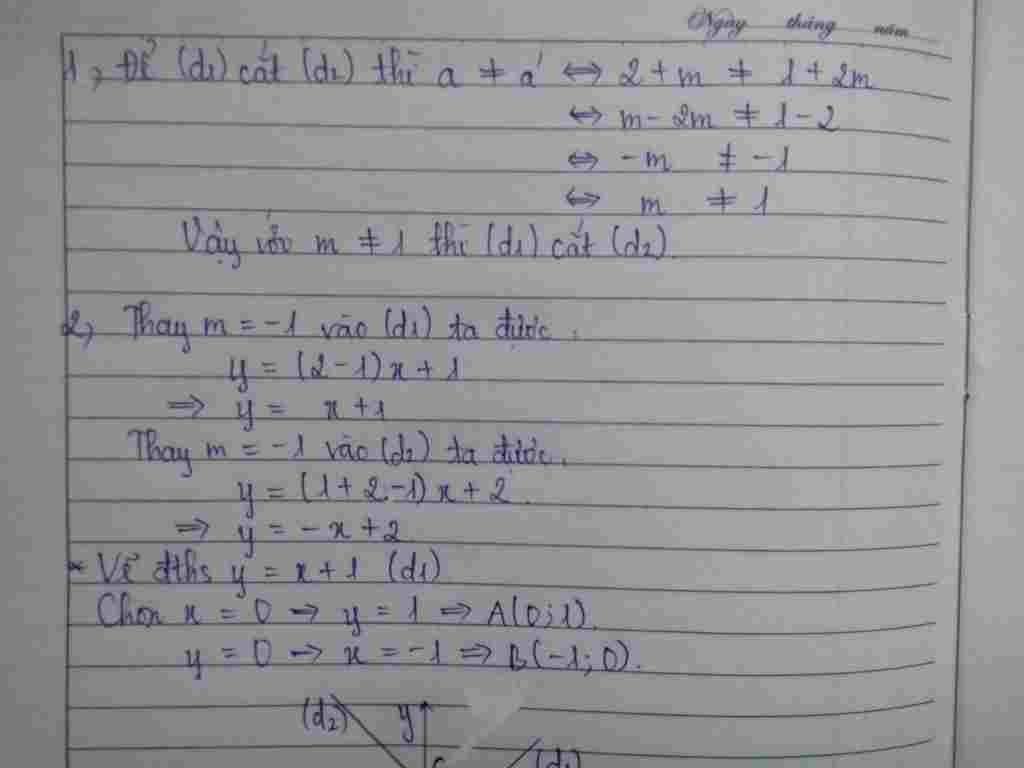 Ngày tháng năm
1, Để (d1) cắt (d2) thì a ≠ a' ⇔ 2 + m ≠ 1 + 2m
⇔ m - 2m ≠ 1 - 2
⇔ -m ≠ -1
⇔ m ≠ 1
Vậy với m ≠ 1 thì (d1) cắt (d2)
2, Thay m = -1 vào (d1) ta được.
y = (2 - 1)x + 1
⇒ y = x + 1
Thay m = -1 vào (d2) ta được.
y = (1 + 2.-1)x + 2
⇒ y = -x + 2
* Vẽ đths y = x + 1 (d1)
Chọn x = 0 → y = 1 ⇒ A(0;1)
y = 0 → x = -1 ⇒ B(-1;0).
(d2) y
(d1)